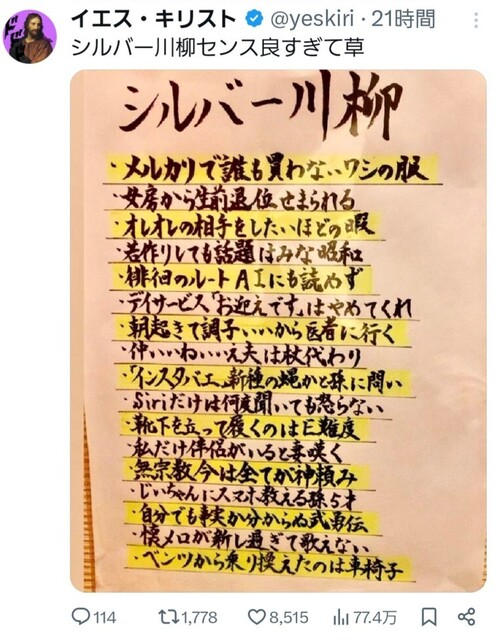 イエス・キリスト @yeskiri・21時間
シルバー川柳センス良すぎて草
シルバー川柳
・メルカリで誰も買わないワシの服
・女房から生前退位せまられる
・オレオレの相手をしたいほどの暇
・若作りしても話題はみな昭和
・徘徊のルートAIにも読めず
・デイサービス「お迎えです」はやめてくれ
・朝起きて調子いいから医者に行く
・仲いいねいいえ夫は杖代わり
・「インスタバエ」新種の蠅かと孫に問い
・Siriだけは何度聞いても怒らない
・靴下を立って履くのはE難度
・私だけ伴侶がいると妻嘆く
・無宗教今は全てが神頼み
・じいちゃんにスマホ教える孫5才
・自分でも事実か分からぬ武勇伝
・懐メロが新し過ぎて歌えない
・ベンツから乗り換えたのは車椅子
114 1,778 8,515 77.4万